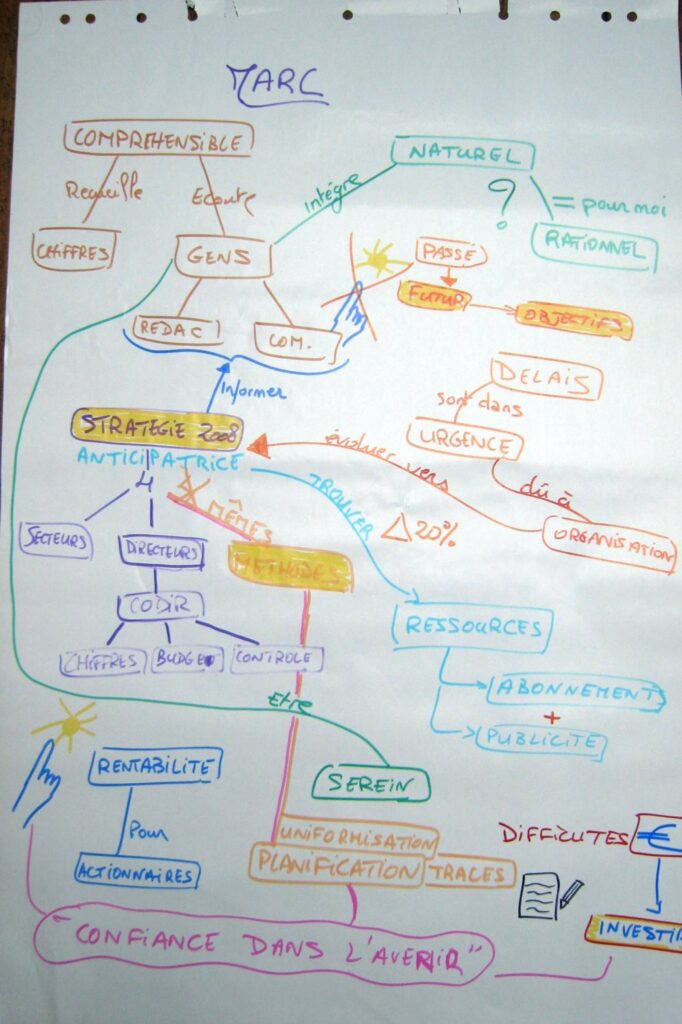 MARC
COMPREHENSIBLE
NATUREL
Recueille
Ecoute
Intègre
?
= pour moi
CHIFFRES
GENS
PASSÉ
RATIONNEL
FUTUR
OBJECTIFS
REDAC
COM.
Informer
DELAIS
sont dans
STRATEGIE 2008
URGENCE
ANTICIPATRICE
évoluer vers
dû à
4
MÊMES
TROUVER
△ 20%
ORGANISATION
SECTEURS
DIRECTEURS
METHODES
CODIR
RESSOURCES
CHIFFRES
BUDGET
CONTROLE
ABONNEMENTS
+
PUBLICITÉ
Etre
RENTABILITE
SEREIN
Pour
UNIFORMISATION
DIFFICUTES
€
ACTIONNAIRES
PLANIFICATION
TRACES
INVESTIR
"CONFIANCE DANS L'AVENIR"